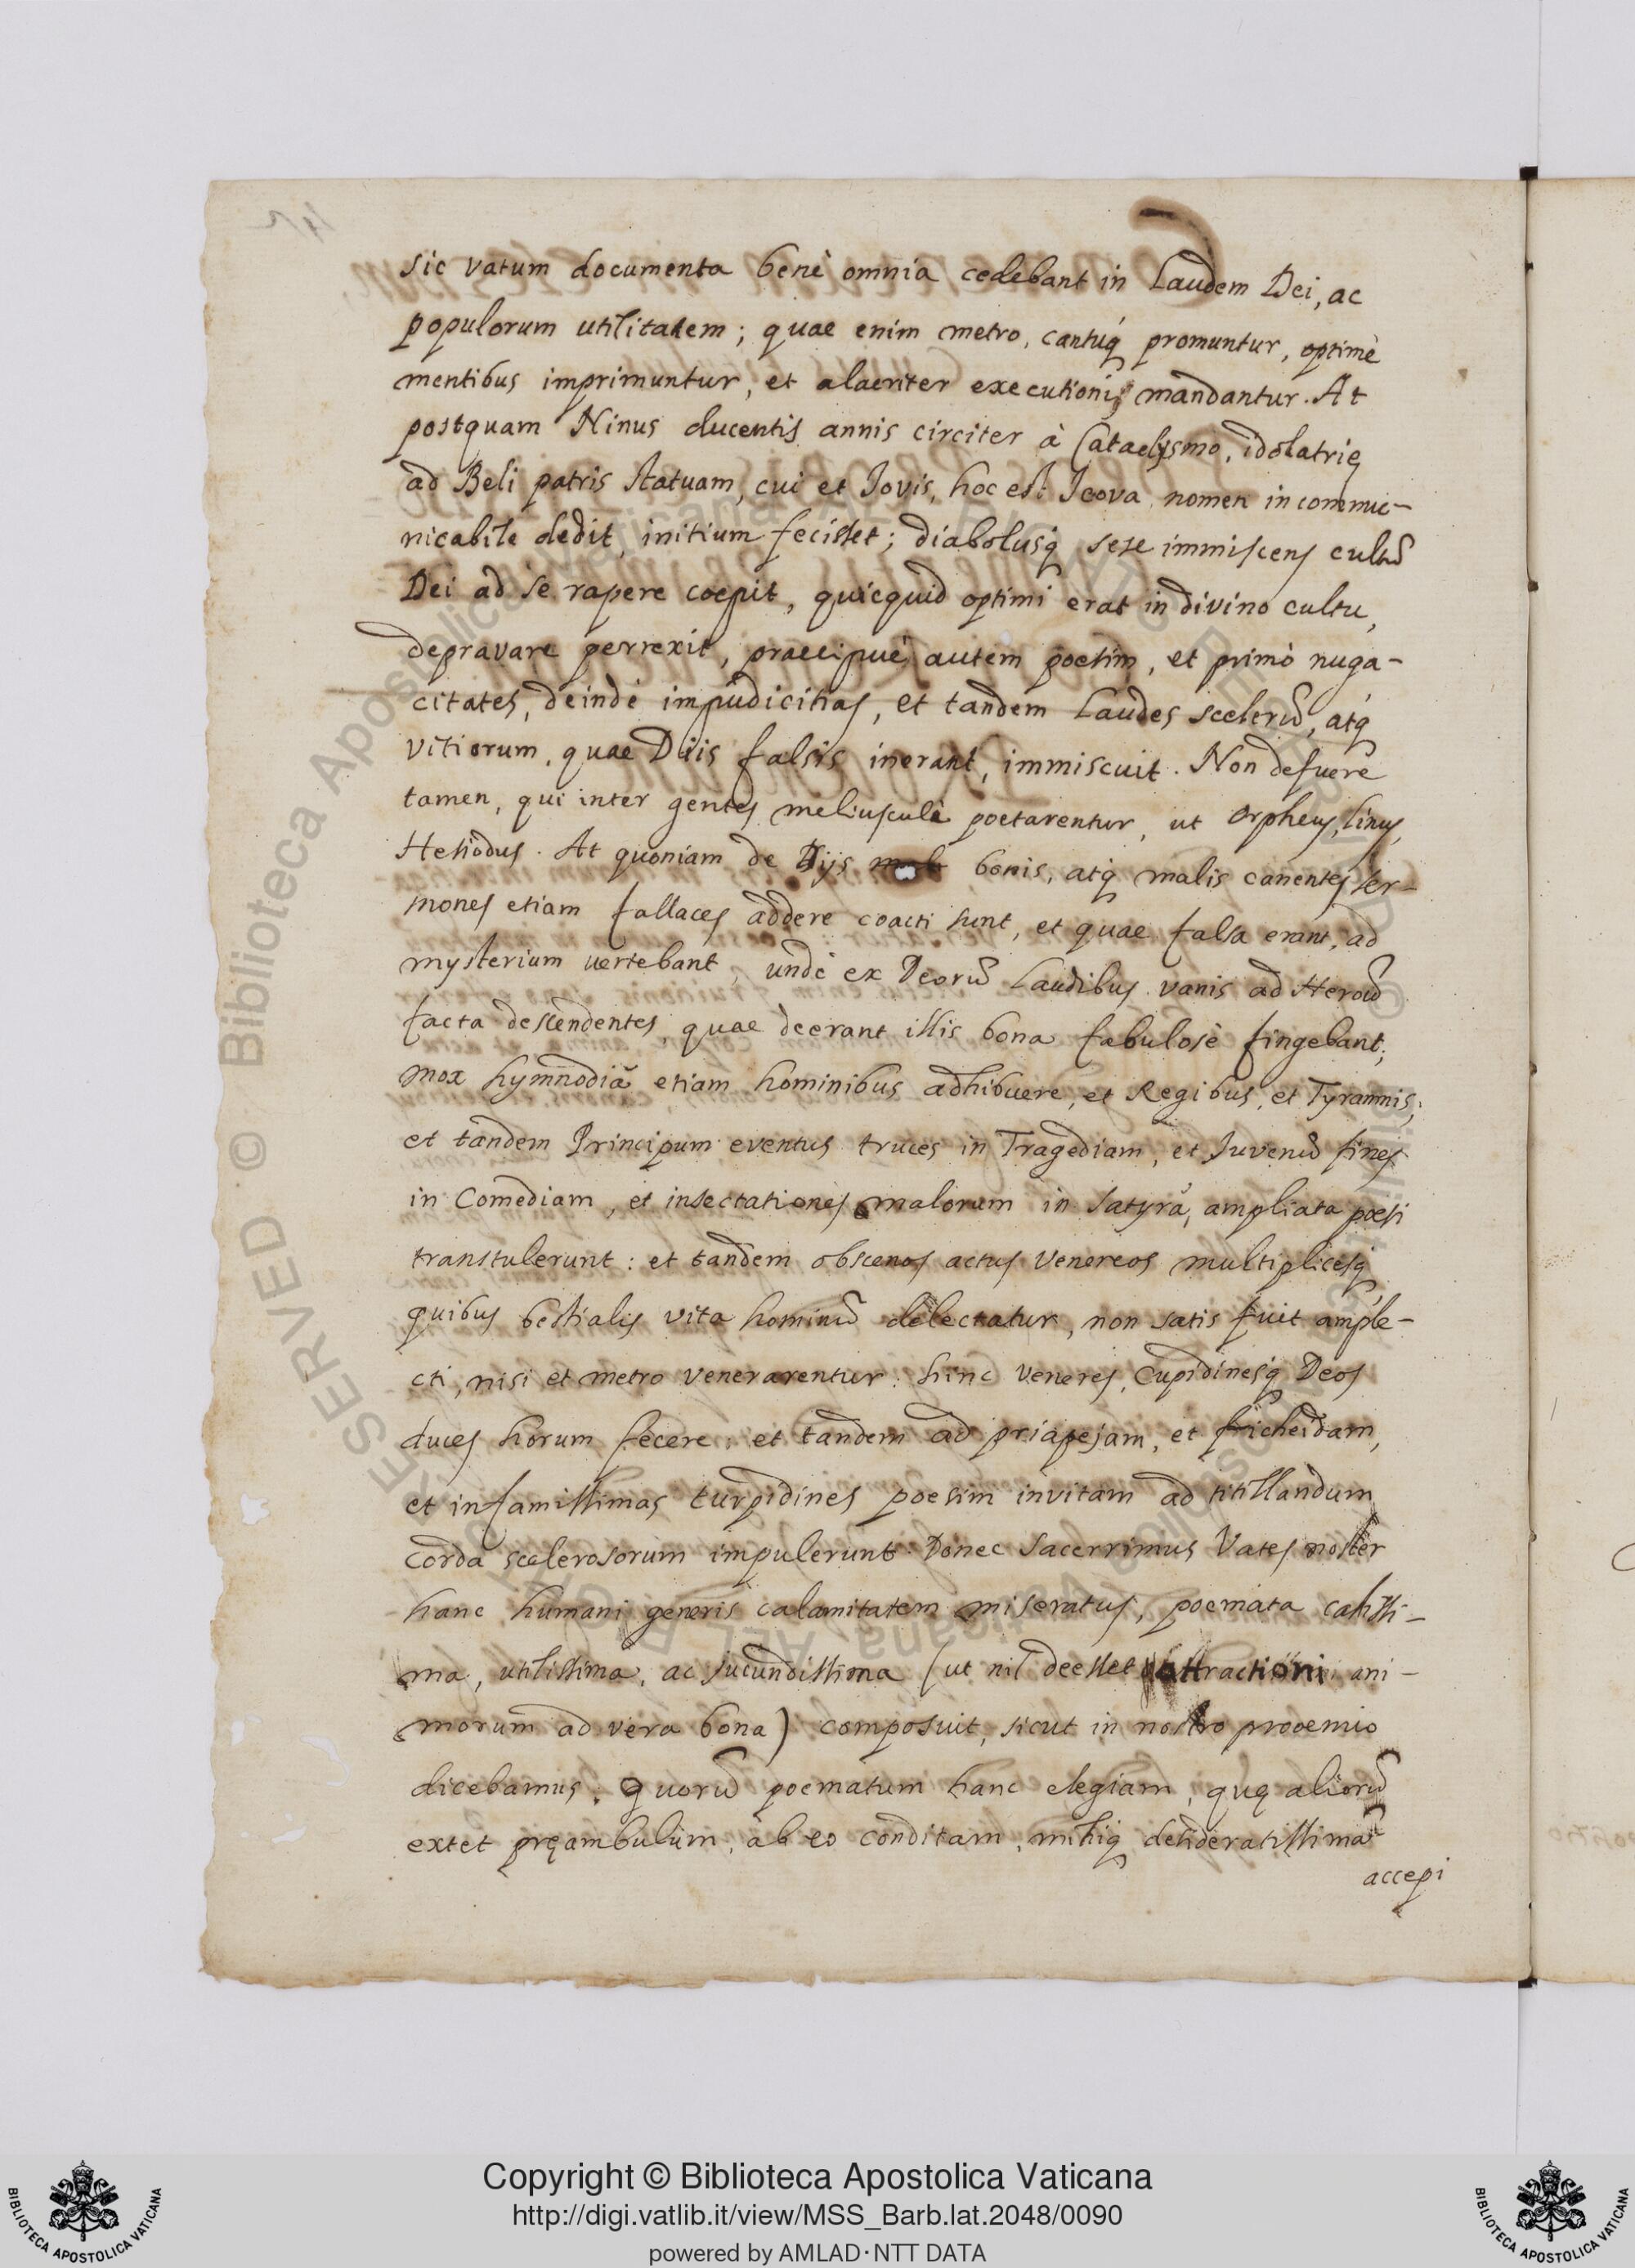 sic vatum documenta benè omnia cedebant in Laudem Dei, ac
populorum utilitatem; quae enim metro, cantuq́ promuntur, optimè
mentibus imprimuntur, et alacriter executioni mandantur. At
postquam Ninus ducentis annis circiter à Cataclysmo, idolatrię
ad Beli patris statuam, cui et Iovis, hoc est Ieova nomen incommu-
nicabile dedit, initium fecisset; diabolusq́ sese immiscens cultũ
Dei ad se rapere coepit, quicquid optimi erat in divino cultu,
depravare perrexit, praecipuè autem poesim, et primò nuga-
citates, deindè impudicitias, et tandem Laudes scelerũ, atq́
vitiorum, quae Diis falsis inerant, immiscuit. Non defuere
tamen, qui inter gentes meliusculè poetarentur, ut Orpheus, Linus,
Hesiodus. At quoniam de Dijs bonis, atq́ malis canentes ser-
mones etiam fallaces addere coacti sunt, et quae falsa erant, ad
mysterium vertebant, undè ex Deorũ Laudibus vanis ad Heroũ
facta descendentes, quae deerant illis bona fabulosè fingebant;
mox hymnodiã etiam hominibus adhibuere, et Regibus, et Tyrannis;
et tandem Principum eventus truces in Tragediam, et Iuvenũ fines
in Comediam, et insectationes malorum in Satyrã, ampliata poesi
transtulerunt: et tandem obscenos actus Venereos multiplicesq́
quibus bestialis vita hominũ delectatur, non satis fuit ample-
cti, nisi et metro venerarentur: hinc Veneres, Cupidinesq́ Deos
duces horum fecere: et tandem ad priapejam, et fricheidam,
et infamissimas turpidines poesim invitam ad titillandum
corda scelerosorum impulerunt: Donec Sacerrimus Vates noster
hanc humani generis calamitatem miseratus, poemata castissi-
ma, utilissima, ac jucundissima (ut nil deesset attractioni ani-
morum ad vera bona) composuit, sicut in nostro prooemio
dicebamus. Quorũ poematum hanc elegiam, quę aliorũ
extet pręambulum, ab eo conditam, mihiq́ desideratissimã
accepi
Copyright © Biblioteca Apostolica Vaticana
http://digi.vatlib.it/view/MSS_Barb.lat.2048/0090
powered by AMLAD·NTT DATA
BIBLIOTECA APOSTOLICA VATICANA
BIBLIOTECA APOSTOLICA VATICANA